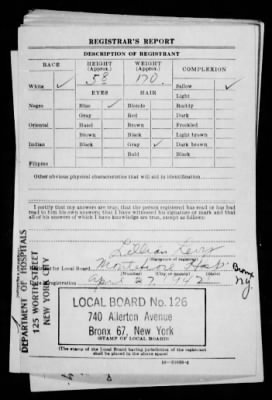 REGISTRAR'S REPORT
DESCRIPTION OF REGISTRANT
RACE HEIGHT (Approx.) WEIGHT (Approx.) COMPLEXION
White ✓ 5 8 170 Sallow ✓
EYES HAIR Light
Negro Blue ✓ Blonde Ruddy
Gray Red Dark
Oriental Hazel Brown Freckled
Brown Black Light brown
Indian Black Gray ✓ Dark brown
Bald Black
Filipino
Other obvious physical characteristics that will aid in identification
I certify that my answers are true; that the person registered has read or has had
read to him his own answers; that I have witnessed his signature or mark and that
all of his answers of which I have knowledge are true, except as follows:
Lillian Levy
(Signature of registrar)
for Local Board Montefiore Hosp. Bronx NY
registration April 27 1942
DEPARTMENT OF HOSPITALS
125 WORTH STREET
NEW YORK CITY
LOCAL BOARD No. 126
740 Allerton Avenue
Bronx 67, New York
(STAMP OF LOCAL BOARD)
(The stamp of the Local Board having jurisdiction of the registrant
shall be placed in the above space.)